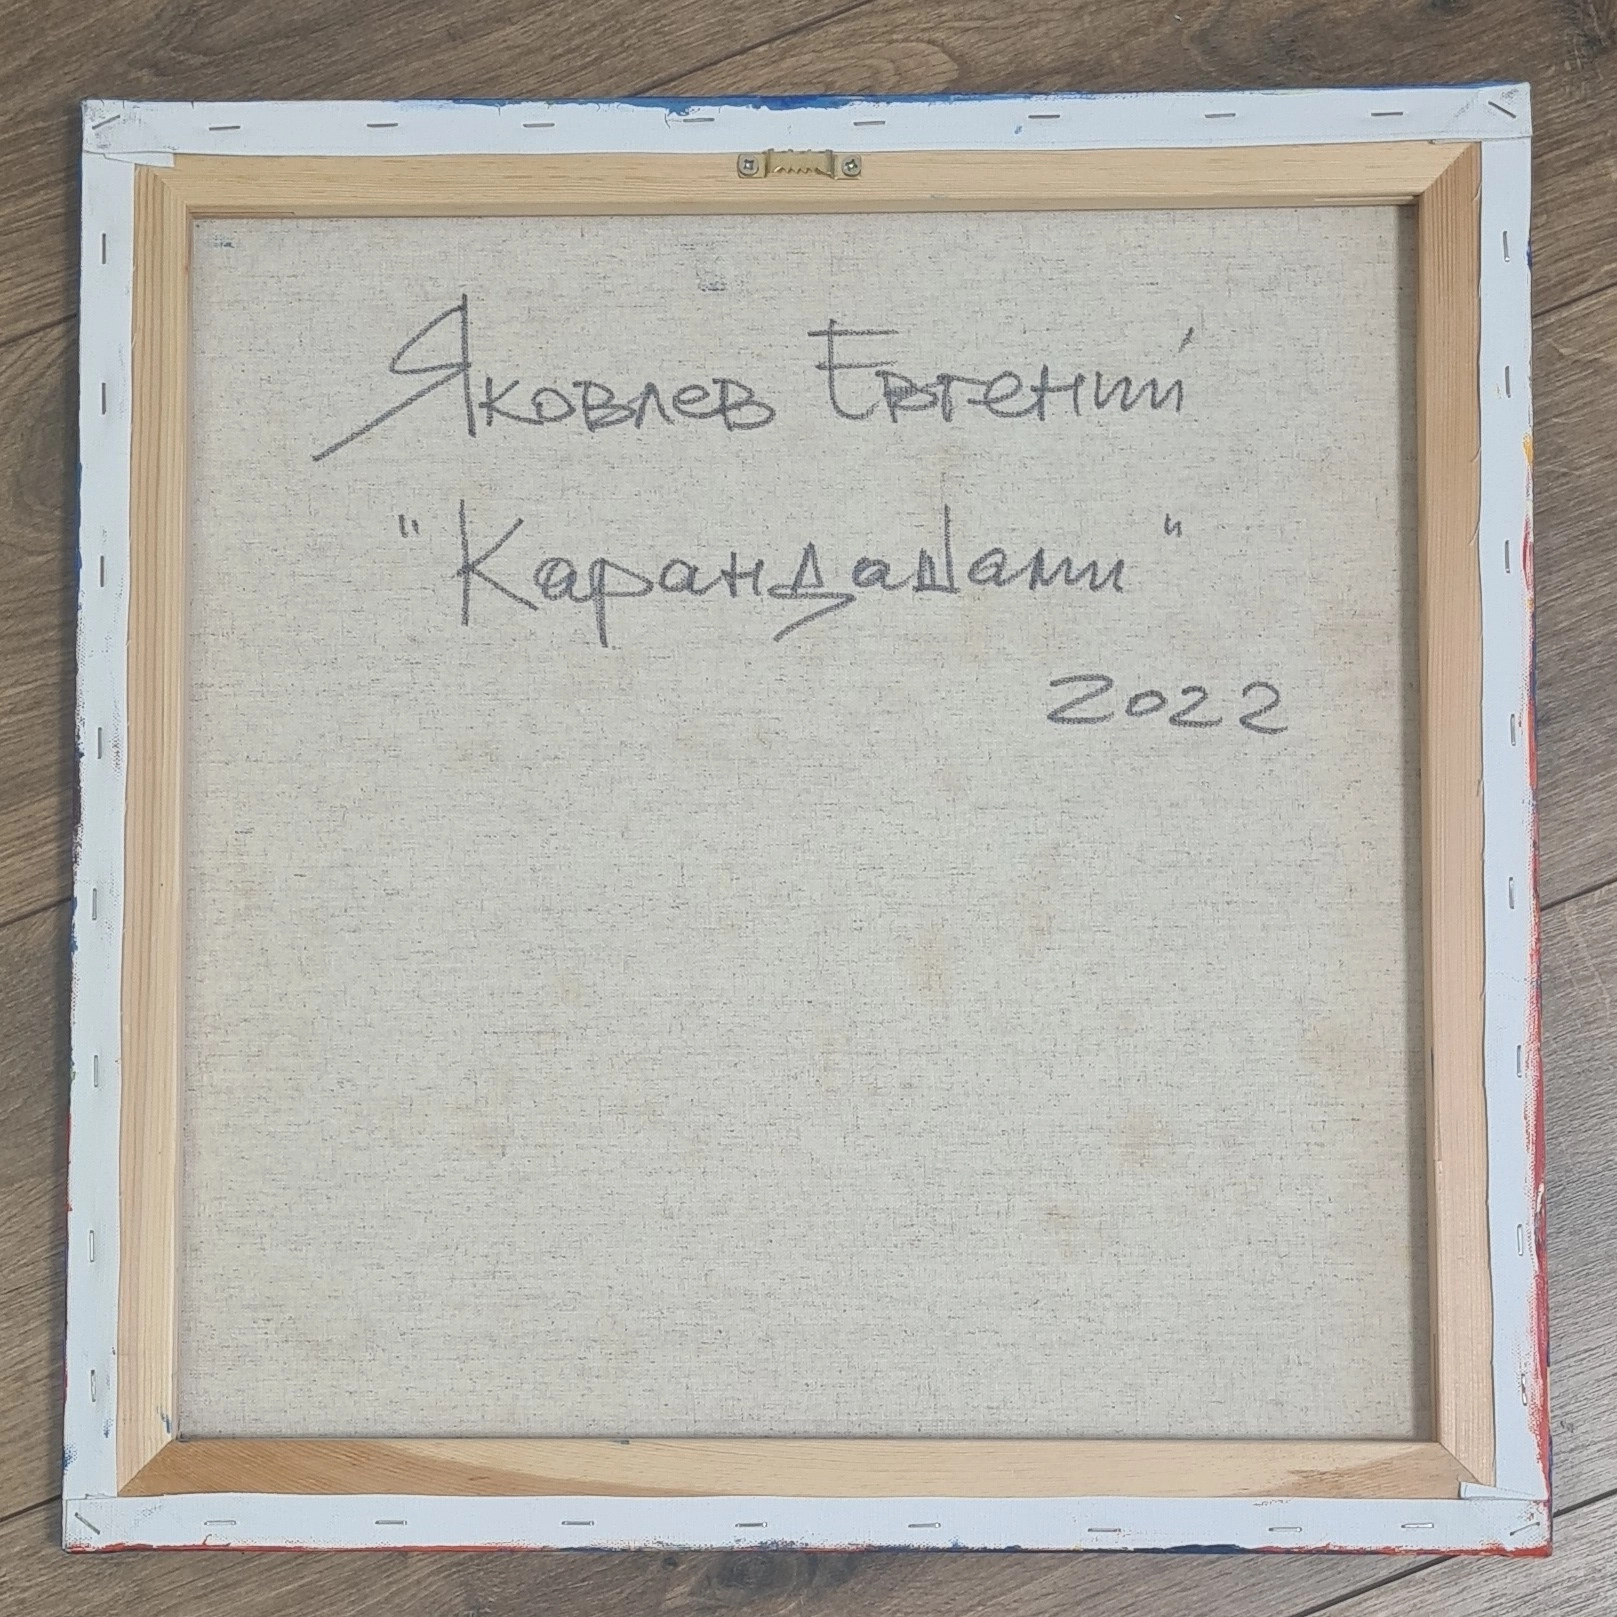 Яковлев Евгений
"Карандашами"
2022